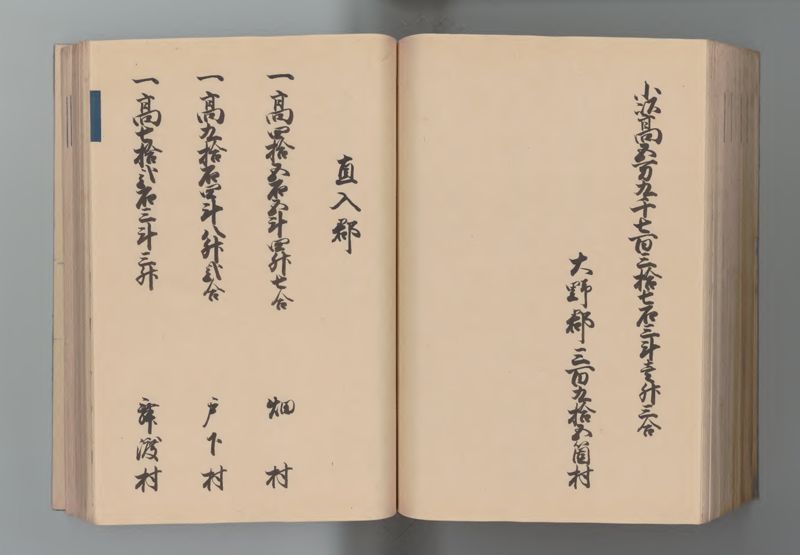 小以高五万九千七百三拾七石三斗壱升三合
大野郡三百九拾五箇村
直入郡
一高四拾五石五斗四升七合 畑村
一高九拾石四斗八升弐合 戸下村
一高七拾弐石三斗三升 村